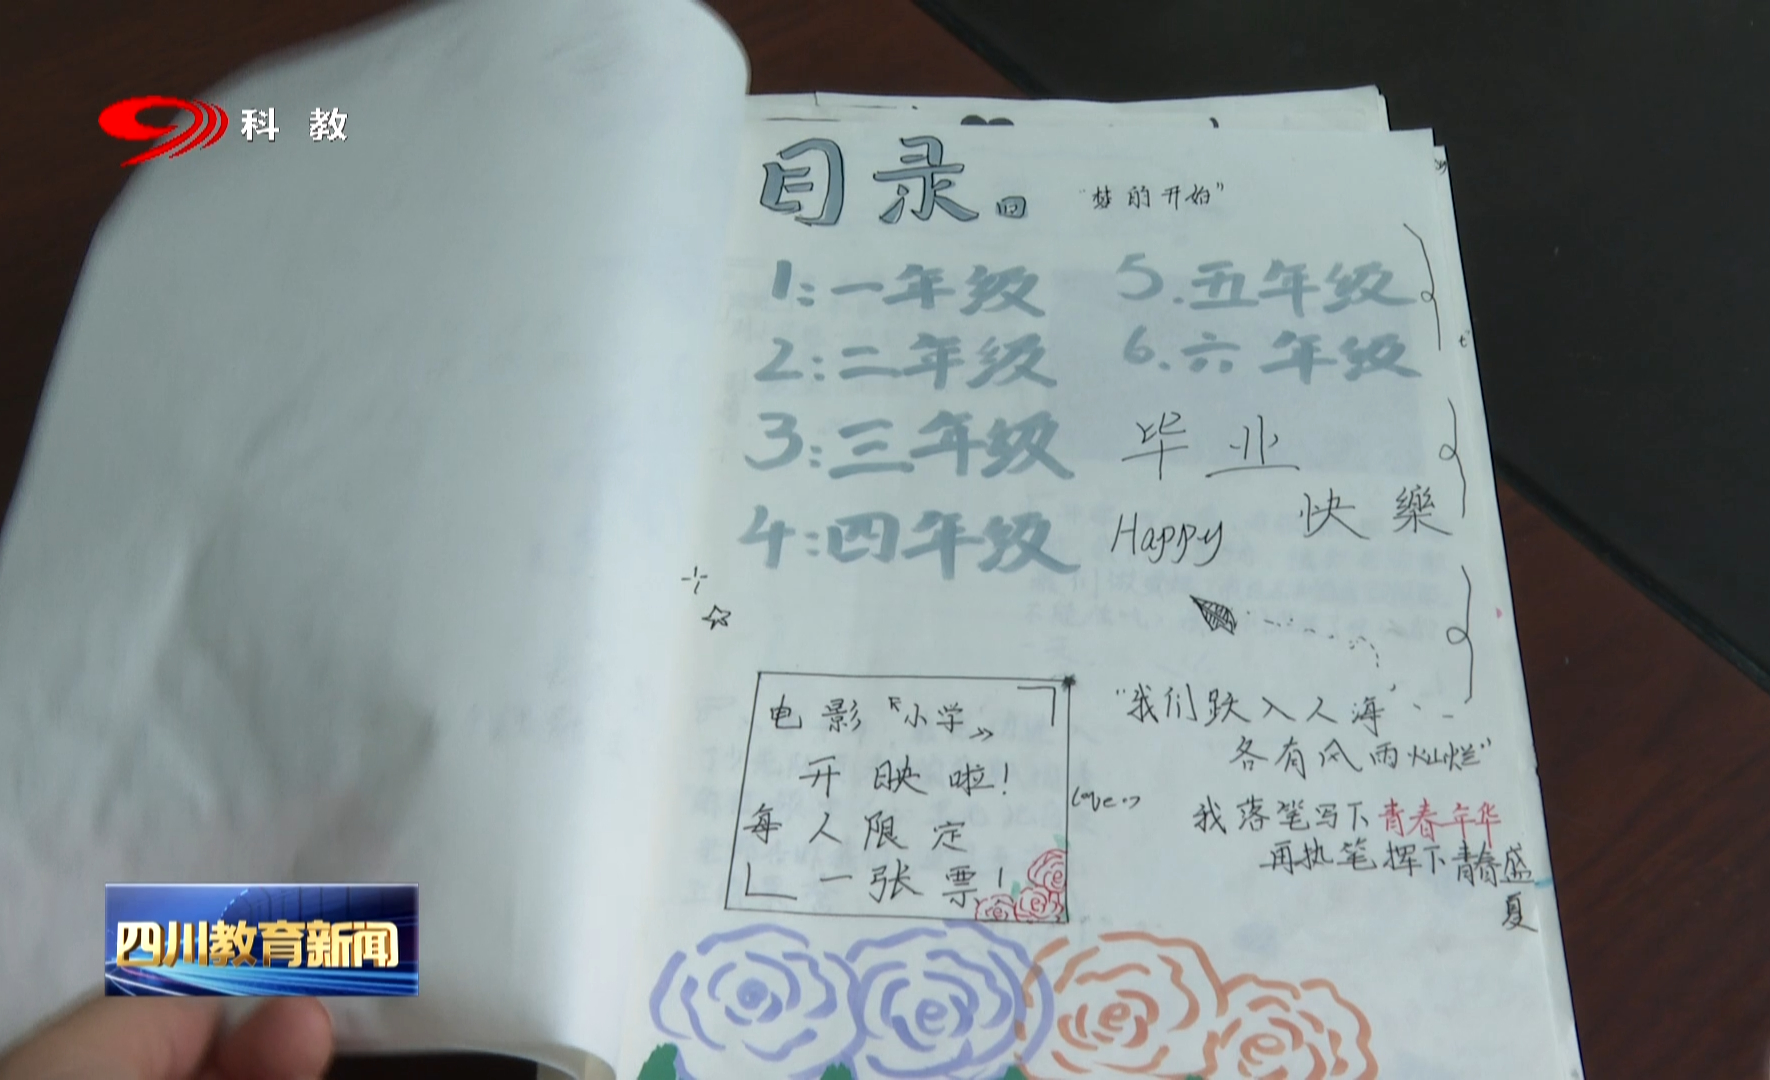 科教
目录。
"梦的开始"
1:一年级
2:二年级
3:三年级
4:四年级
5.五年级
6.六年级
毕业
快樂
Happy
电影『小学』
开映啦!
每人限定
一张票!
Love
"我们跌入人海
各有风雨灿烂"
我落笔写下青春年华
再执笔挥下青春盛
夏
四川教育新闻